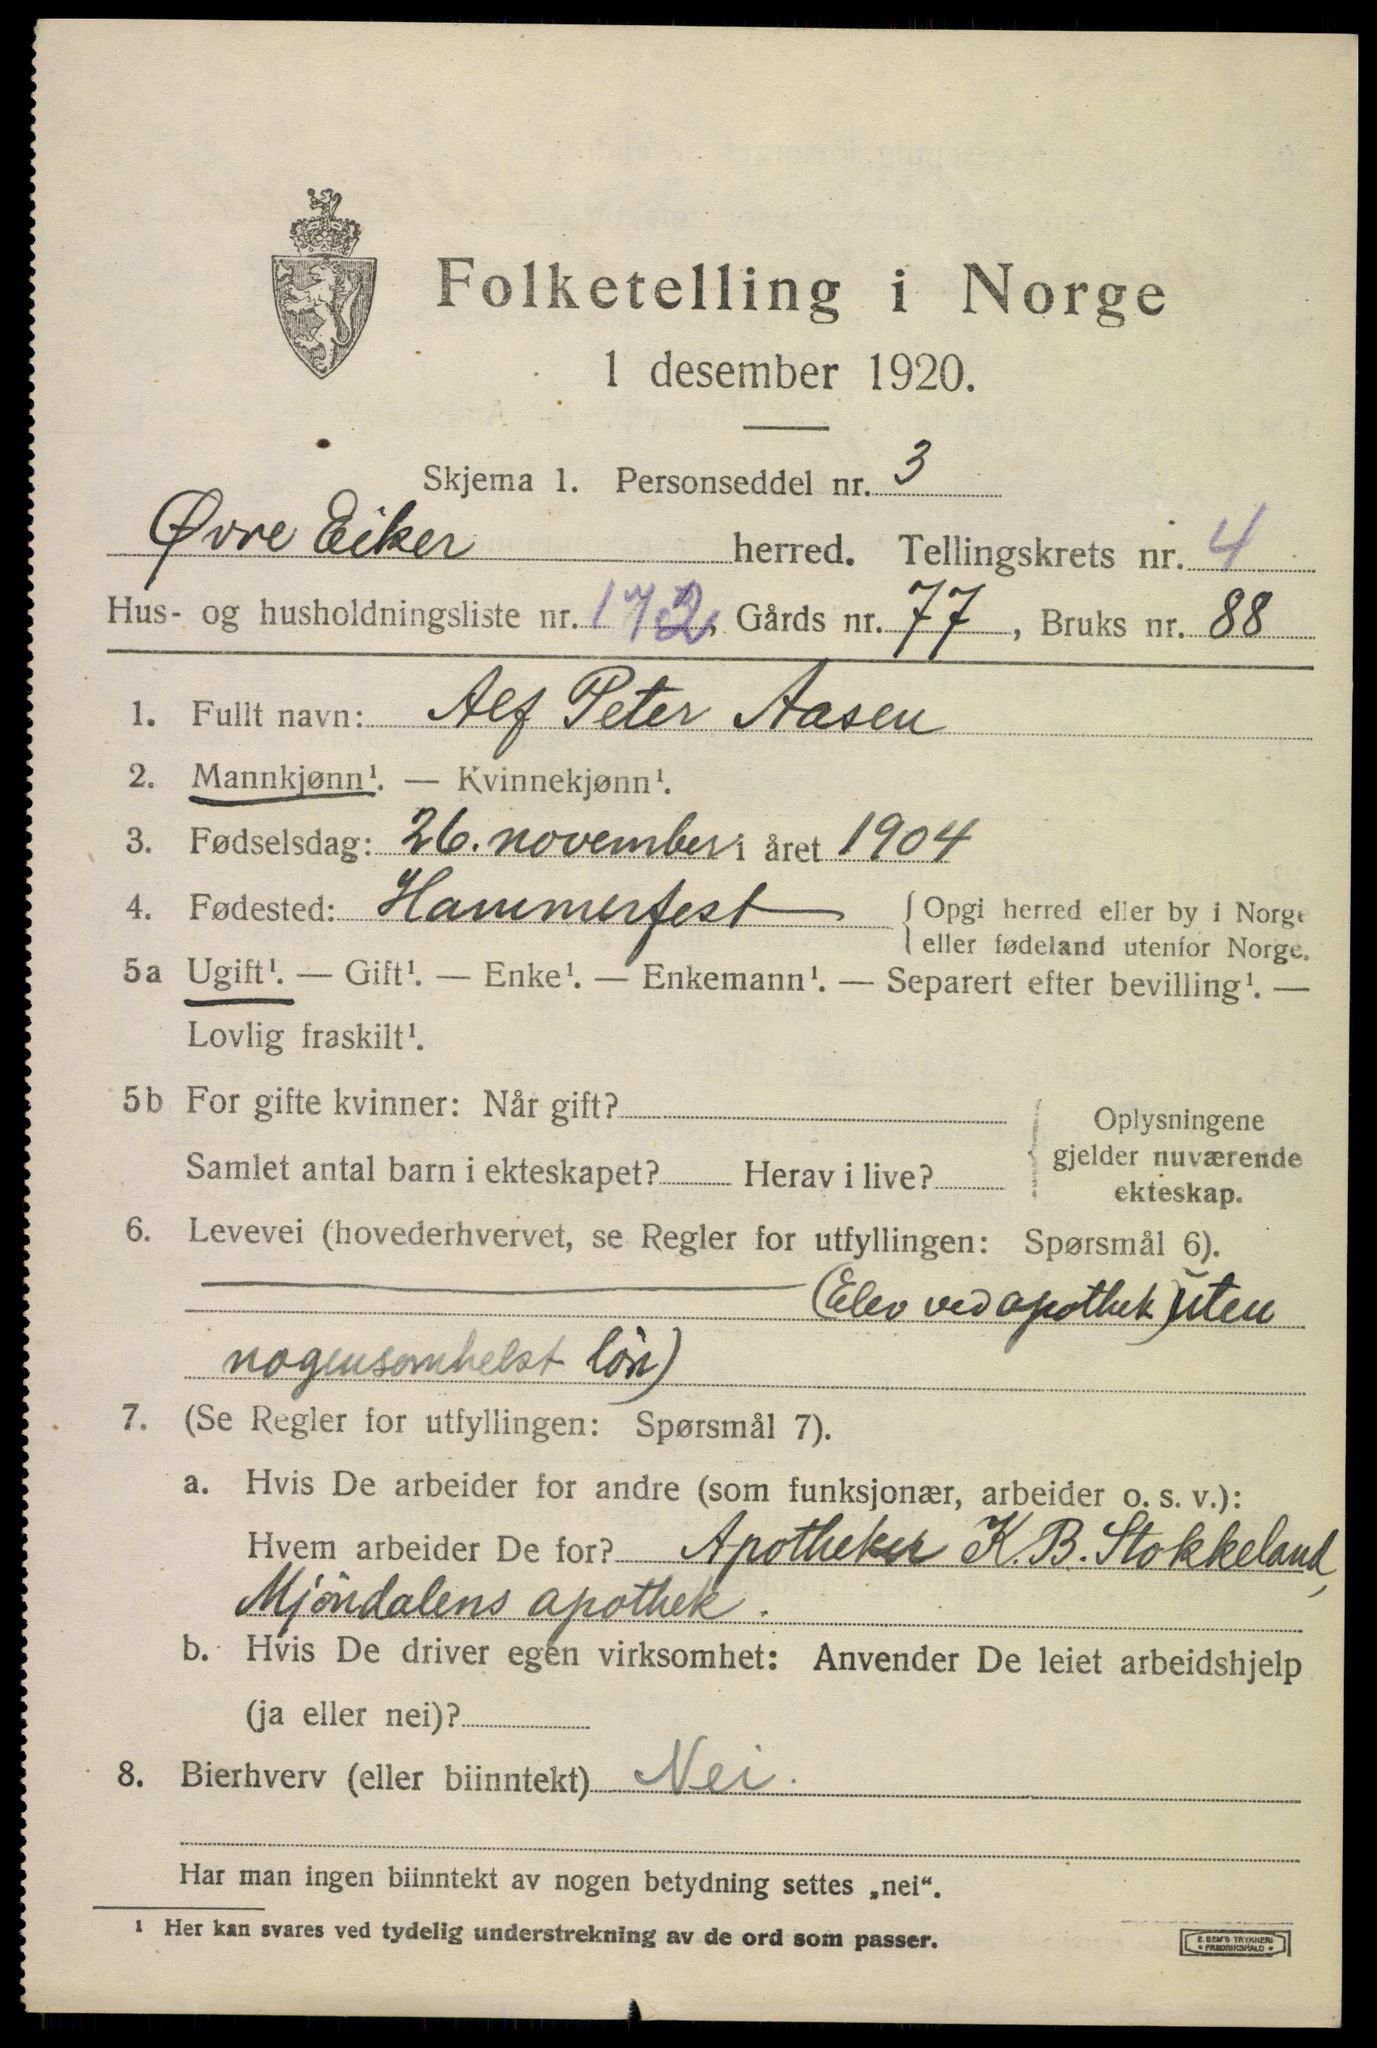 Folketelling i Norge
1 desember 1920.
Skjema 1. Personseddel nr. 3
Øvre Eiker herred. Tellingskrets nr. 4
Hus- og husholdningsliste nr. 172, Gårds nr. 77, Bruks nr. 88
1. Fullt navn: Alf Peter Aasen
2. Mannkjønn¹. — Kvinnekjønn¹.
3. Fødselsdag: 26. november i året 1904
4. Fødested: Hammerfest { Opgi herred eller by i Norge
eller fødeland utenfor Norge.
5a Ugift¹. — Gift¹. — Enke¹. — Enkemann¹. — Separert efter bevilling¹. —
Lovlig fraskilt¹.
5b For gifte kvinner: Når gift?
Samlet antal barn i ekteskapet? Herav i live?
{ Oplysningene
gjelder nuværende
ekteskap.
6. Levevei (hovederhvervet, se Regler for utfyllingen: Spørsmål 6).
(Elev ved apothek) uten
nogensomhelst løn)
7. (Se Regler for utfyllingen: Spørsmål 7).
a. Hvis De arbeider for andre (som funksjonær, arbeider o. s. v.):
Hvem arbeider De for? Apotheker K. B. Stokkeland,
Mjöndalens apothek.
b. Hvis De driver egen virksomhet: Anvender De leiet arbeidshjelp
(ja eller nei)?
8. Bierhverv (eller biinntekt) Nei.
Har man ingen biinntekt av nogen betydning settes „nei“.
¹ Her kan svares ved tydelig understrekning av de ord som passer.
E. SEM'S TRYKKERI
• FREDRIKSHALD •